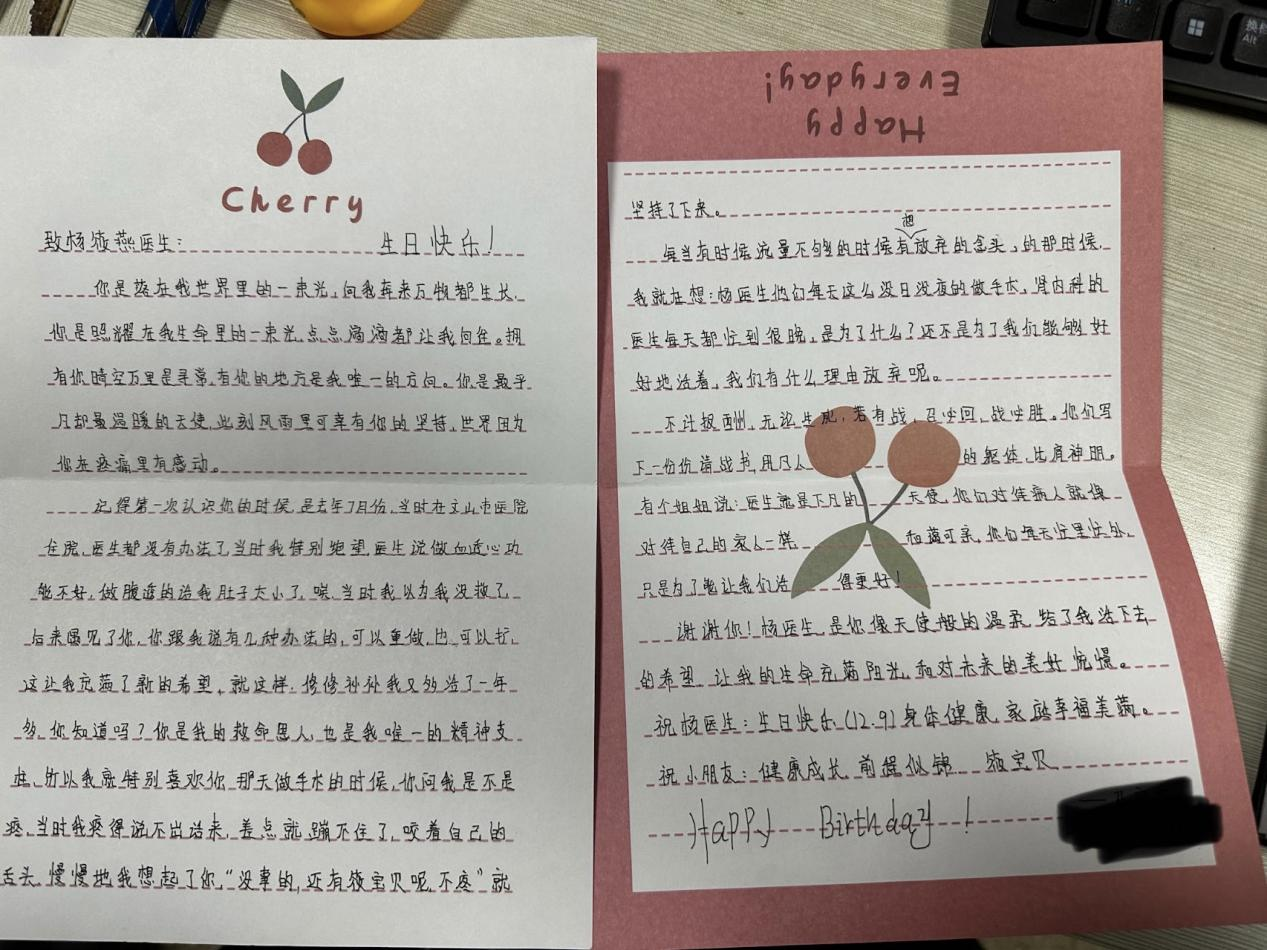 Cherry
致杨筱燕医生: 生日快乐!
你是落在我世界里的一束光,向我奔来万物都生长.
你是照耀在我生命里的一束光,点点滴滴都让我回望。拥
有你晴空万里是寻常,有你的地方是我唯一的方向。你是最平
凡却最温暖的天使,此刻风雨里可幸有你的坚持,世界因为
你在疼痛里有感动。
记得第一次认识你的时候,是去年7月份,当时在文山市医院
住院,医生都没有办法了,当时我特别绝望,医生说做血透心功
能不好,做腹透的话我肚子太小了,唉,当时我以为我没救了
后来遇见了你,你跟我说有几种办法的,可以重做,也可以扩,
这让我充满了新的希望,就这样,修修补补我又多活了一年
多,你知道吗?你是我的救命恩人,也是我唯一的精神支
柱,所以我就特别喜欢你,那天做手术的时候,你问我是不是
疼,当时我疼得说不出话来,差点就蹦不住了,咬着自己的
舌头,慢慢地我想起了你,“没事的,还有筱宝贝呢,不疼”就
Happy
Everyday!
坚持了下来。
每当有时候流量不够的时候有想放弃的念头,的那时候,
我就在想:杨医生他们每天这么没日没夜的做手术,肾内科的
医生每天都忙到很晚,是为了什么?还不是为了我们能够好
好地活着,我们有什么理由放弃呢。
不计报酬,无论生死,若有战,召必回,战必胜。你们写
下一份份请战书,用凡人 的躯体,比肩神明。
有个姐姐说:医生就是下凡的 天使,你们对待病人就像
对待自己的家人一样, 和蔼可亲,你们每天忙里忙外,
只是为了能让我们活 得更好!
谢谢你!杨医生,是你像天使般的温柔,给了我活下去
的希望,让我的生命充满阳光,和对未来的美好憧憬。
祝杨医生:生日快乐(12.9)身体健康,家庭幸福美满。
祝小朋友:健康成长,前程似锦 筱宝贝
Happy Birthday!
Alt